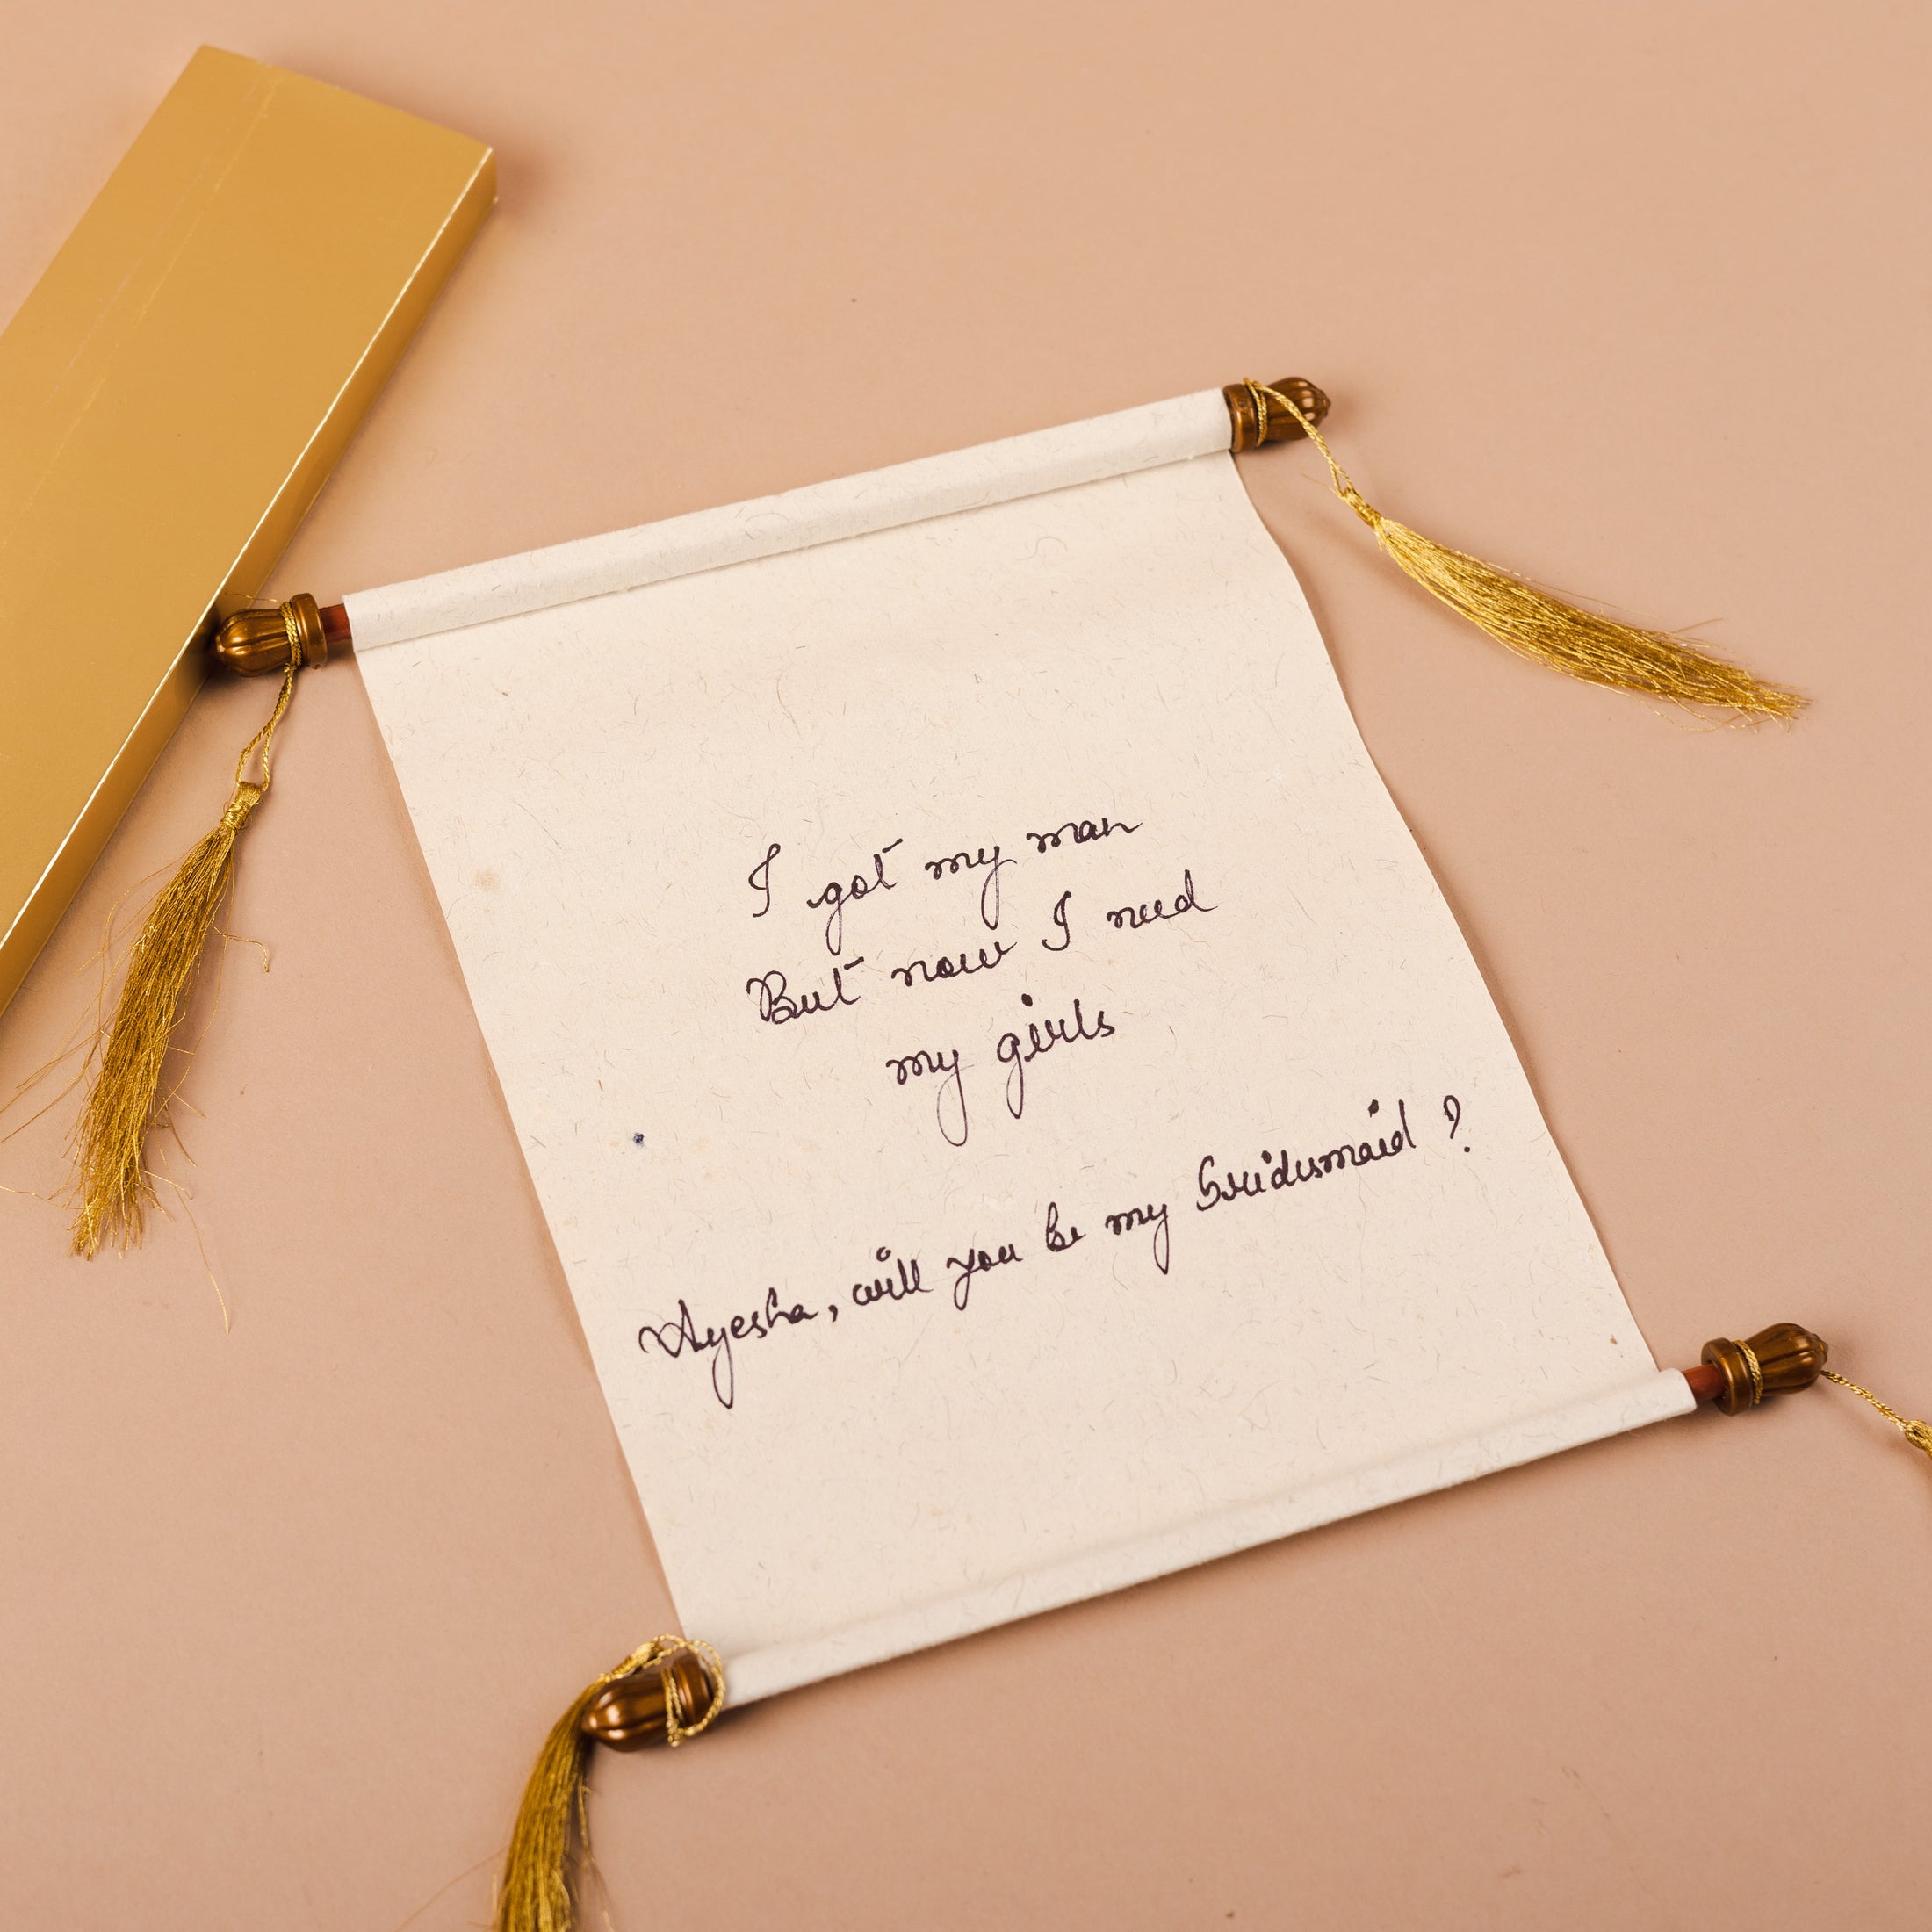 I got my man
But now I need
my girls
Ayesha, will you be my bridesmaid ?